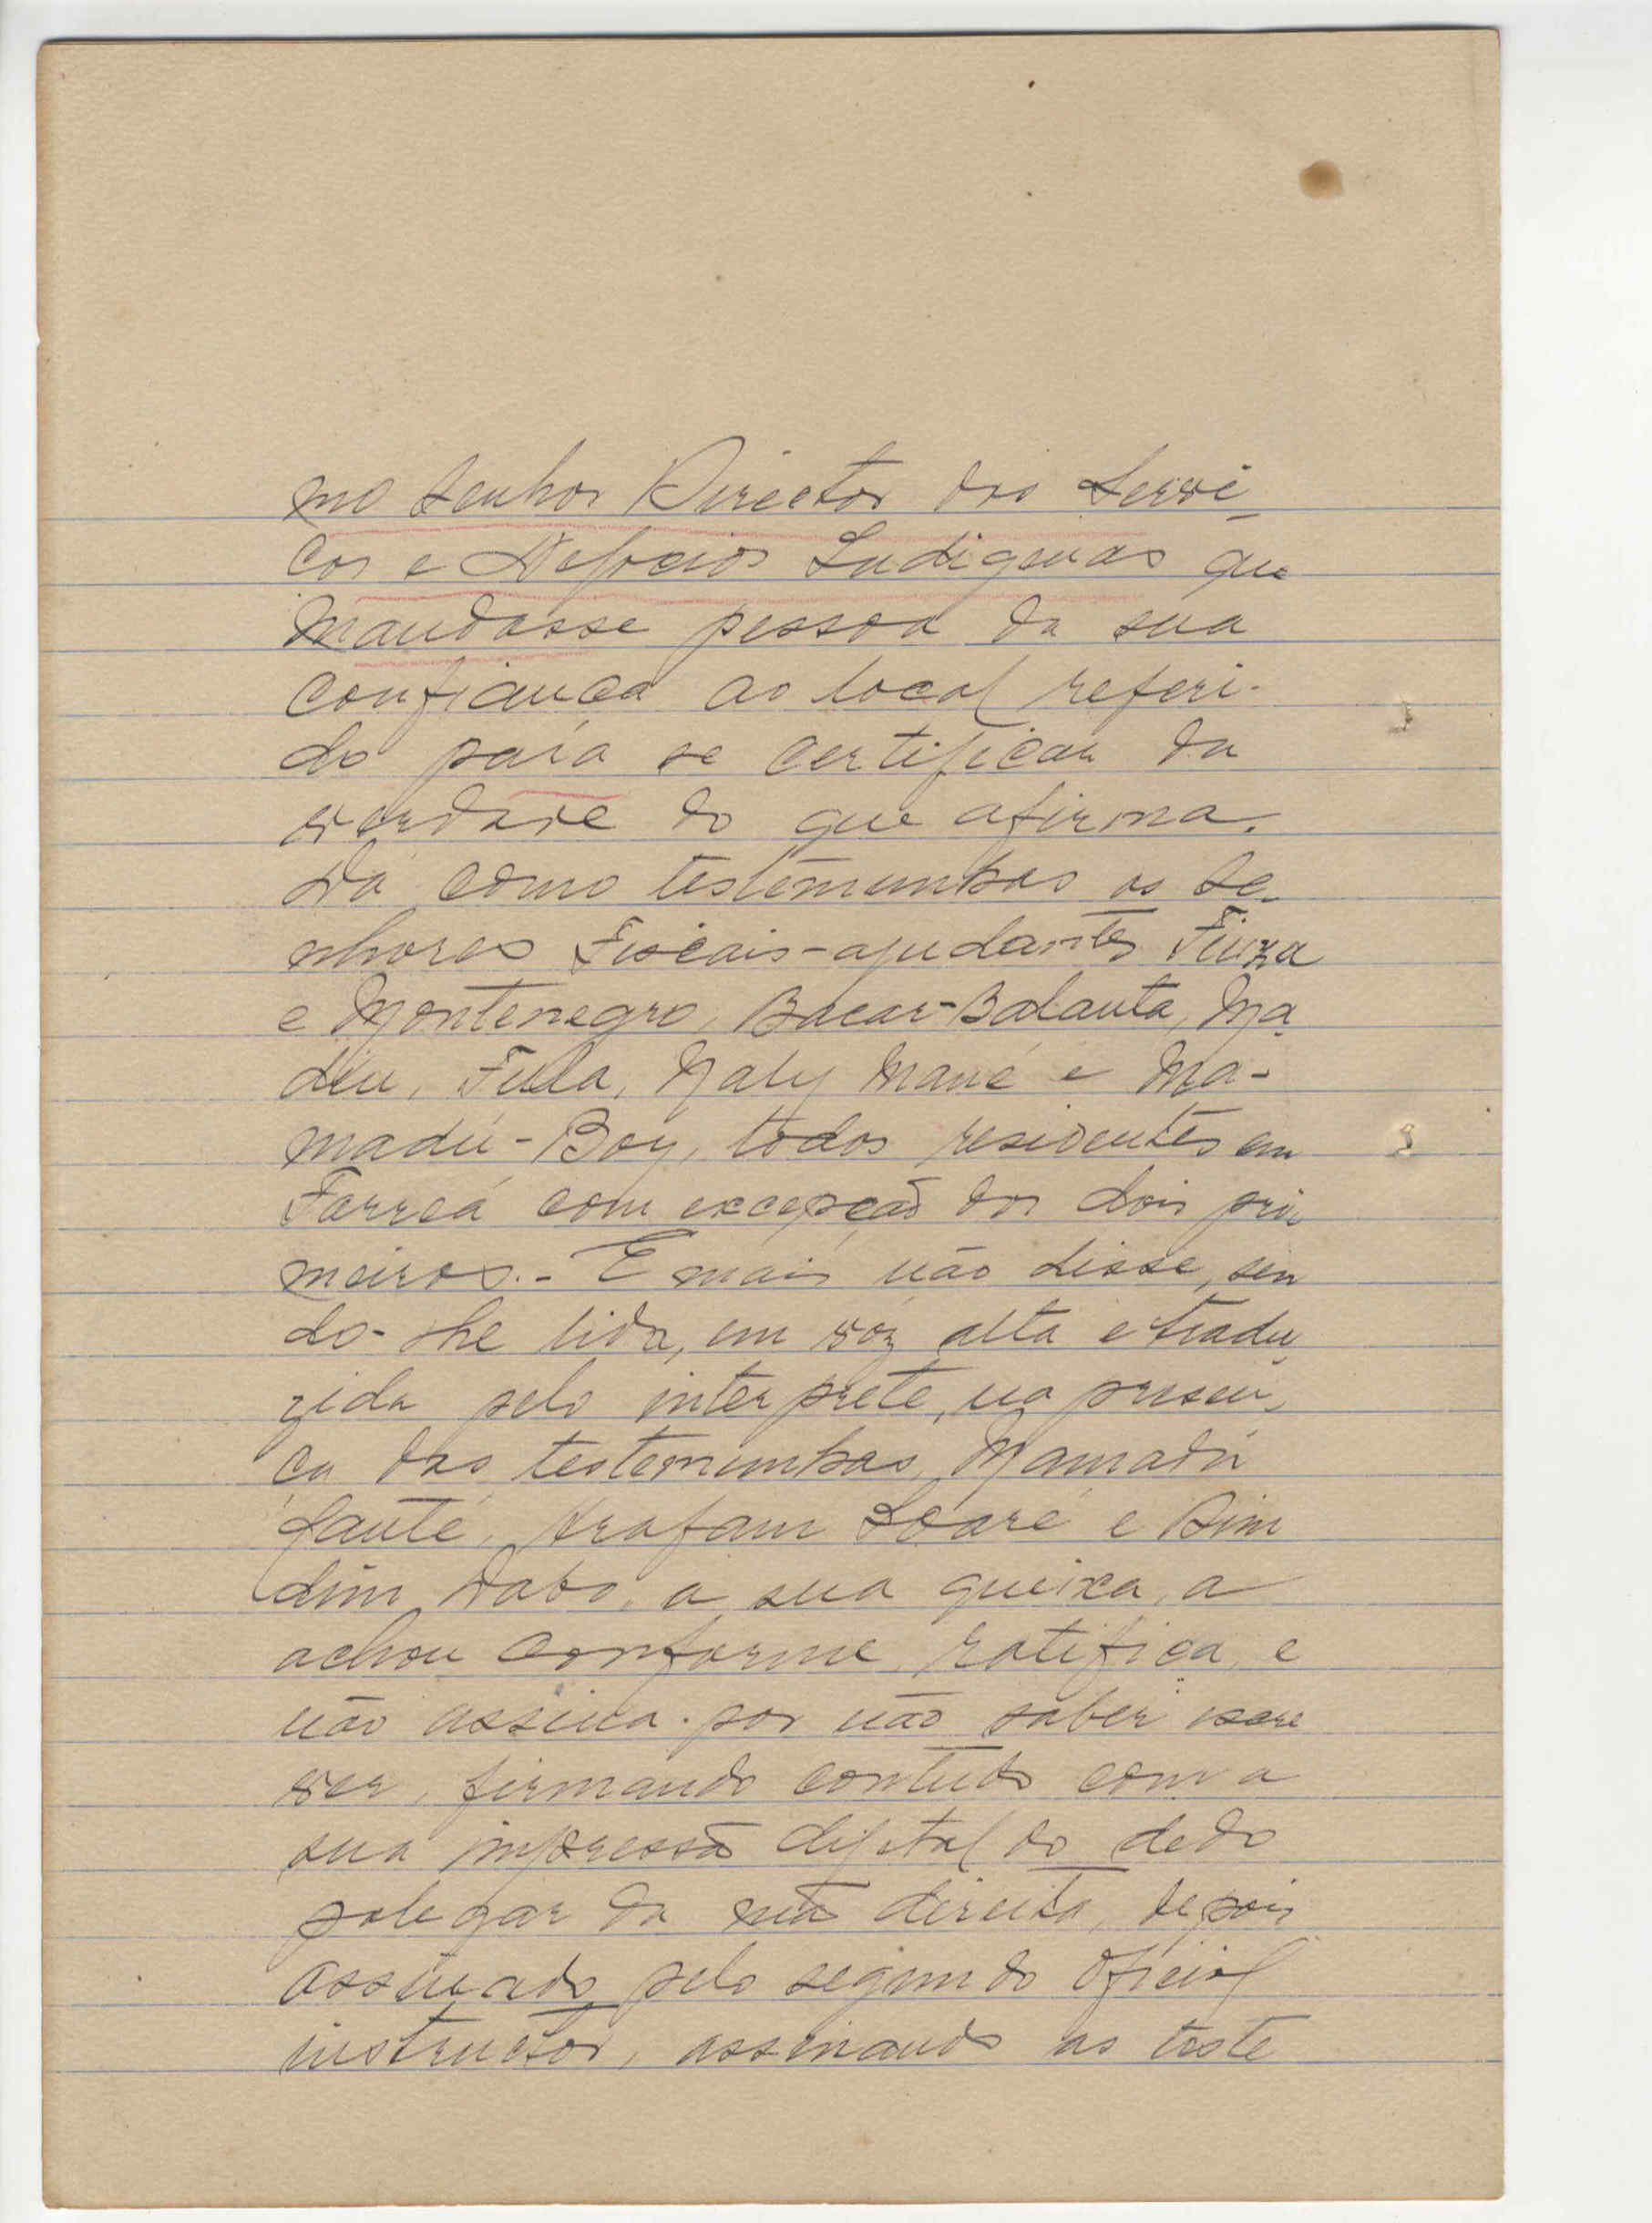 mo Senhor Director dos Servi-
ços e Negocios Indigenas que
mandasse pessoa da sua
confiança ao local referi-
do para se certificar da
verdade do que afirma.
Dá como testemunhas os Se-
nhores Fiscais-ajudantes Fiuza
e Montenegro, Bacar-Balanta, Ma-
diu, Fula, Maly Mané e Ma-
madú-Boy, todos residentes em
Farreá com excepção dos dois pri-
meiros.- E mais não disse, sen
do-lhe lida, em voz alta e tradu-
zida pelo interprete, na presen-
ça das testemunhas, Mamadú
Arafam Soaré e Bim
dim Dabó, a sua queixa, a
achou conforme, ratifica, e
não assina por não saber escre
ver, firmando contudo com a
sua impressão digital do dedo
polegar da mão direita, depois
assinado pelo segundo Oficial
instructor, assinando as teste